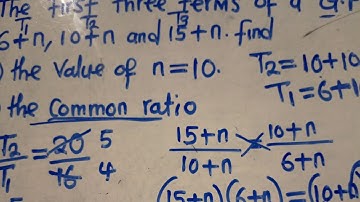 The first three terms of a G.P
T1 T2 T3
6+n, 10+n and 15+n. find
the value of n=10. T2=10+10
T1=6+1
the common ratio
T2/T1 = 20/16 5/4
15+n/10+n 10+n/6+n
(15+n)(6+n)=(10+n)